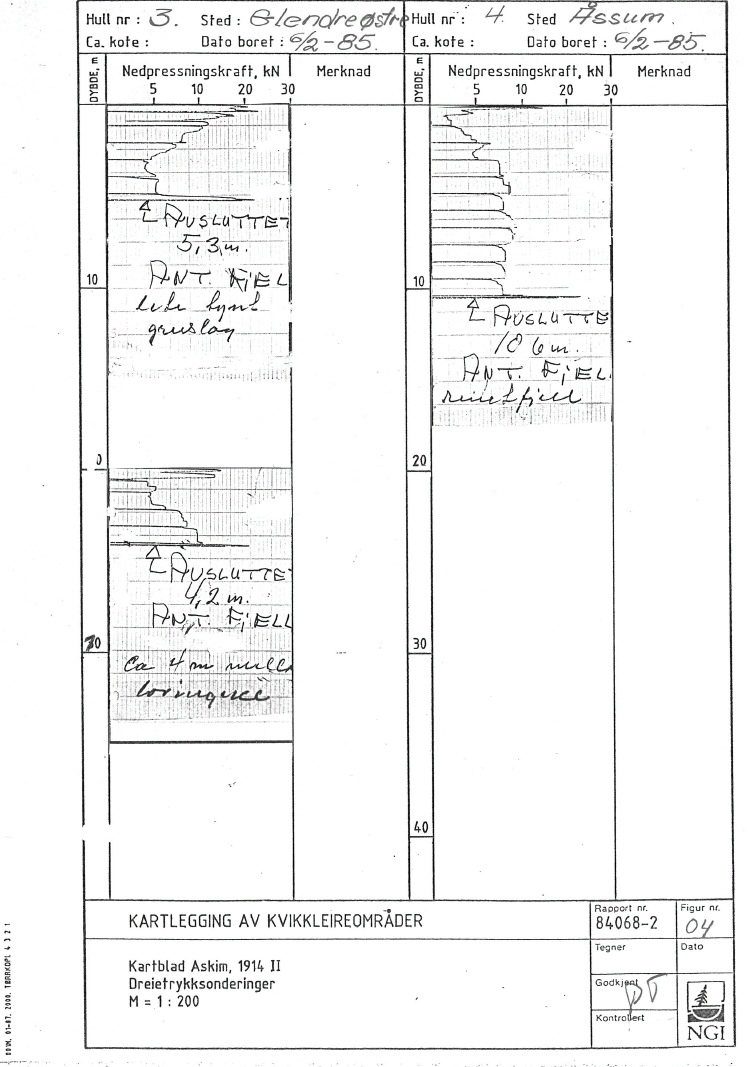 Hull nr : 3. Sted : Glendre østre
Ca. kote : Dato boret : 6/2-85.
Hull nr : 4. Sted Åssum.
Ca. kote : Dato boret : 6/2-85.
DYBDE, m
Nedpressningskraft, kN
5 10 20 30
Merknad
DYBDE, m
Nedpressningskraft, kN
5 10 20 30
Merknad
AUSLUTTET
5,3 m.
ANT. FJEL
gruslag
10
0
AUSLUTTE
4,2 m.
ANT. FJELL
Ca 4 m mellom
10
AUSLUTTE
10 6 m.
ANT. FJEL.
20
30
40
KARTLEGGING AV KVIKKLEIREOMRÅDER
Kartblad Askim, 1914 II
Dreietrykksonderinger
M = 1 : 200
Rapport nr.
84068-2
Figur nr.
04
Tegner
Dato
Godkjent
Kontrollert
NGI